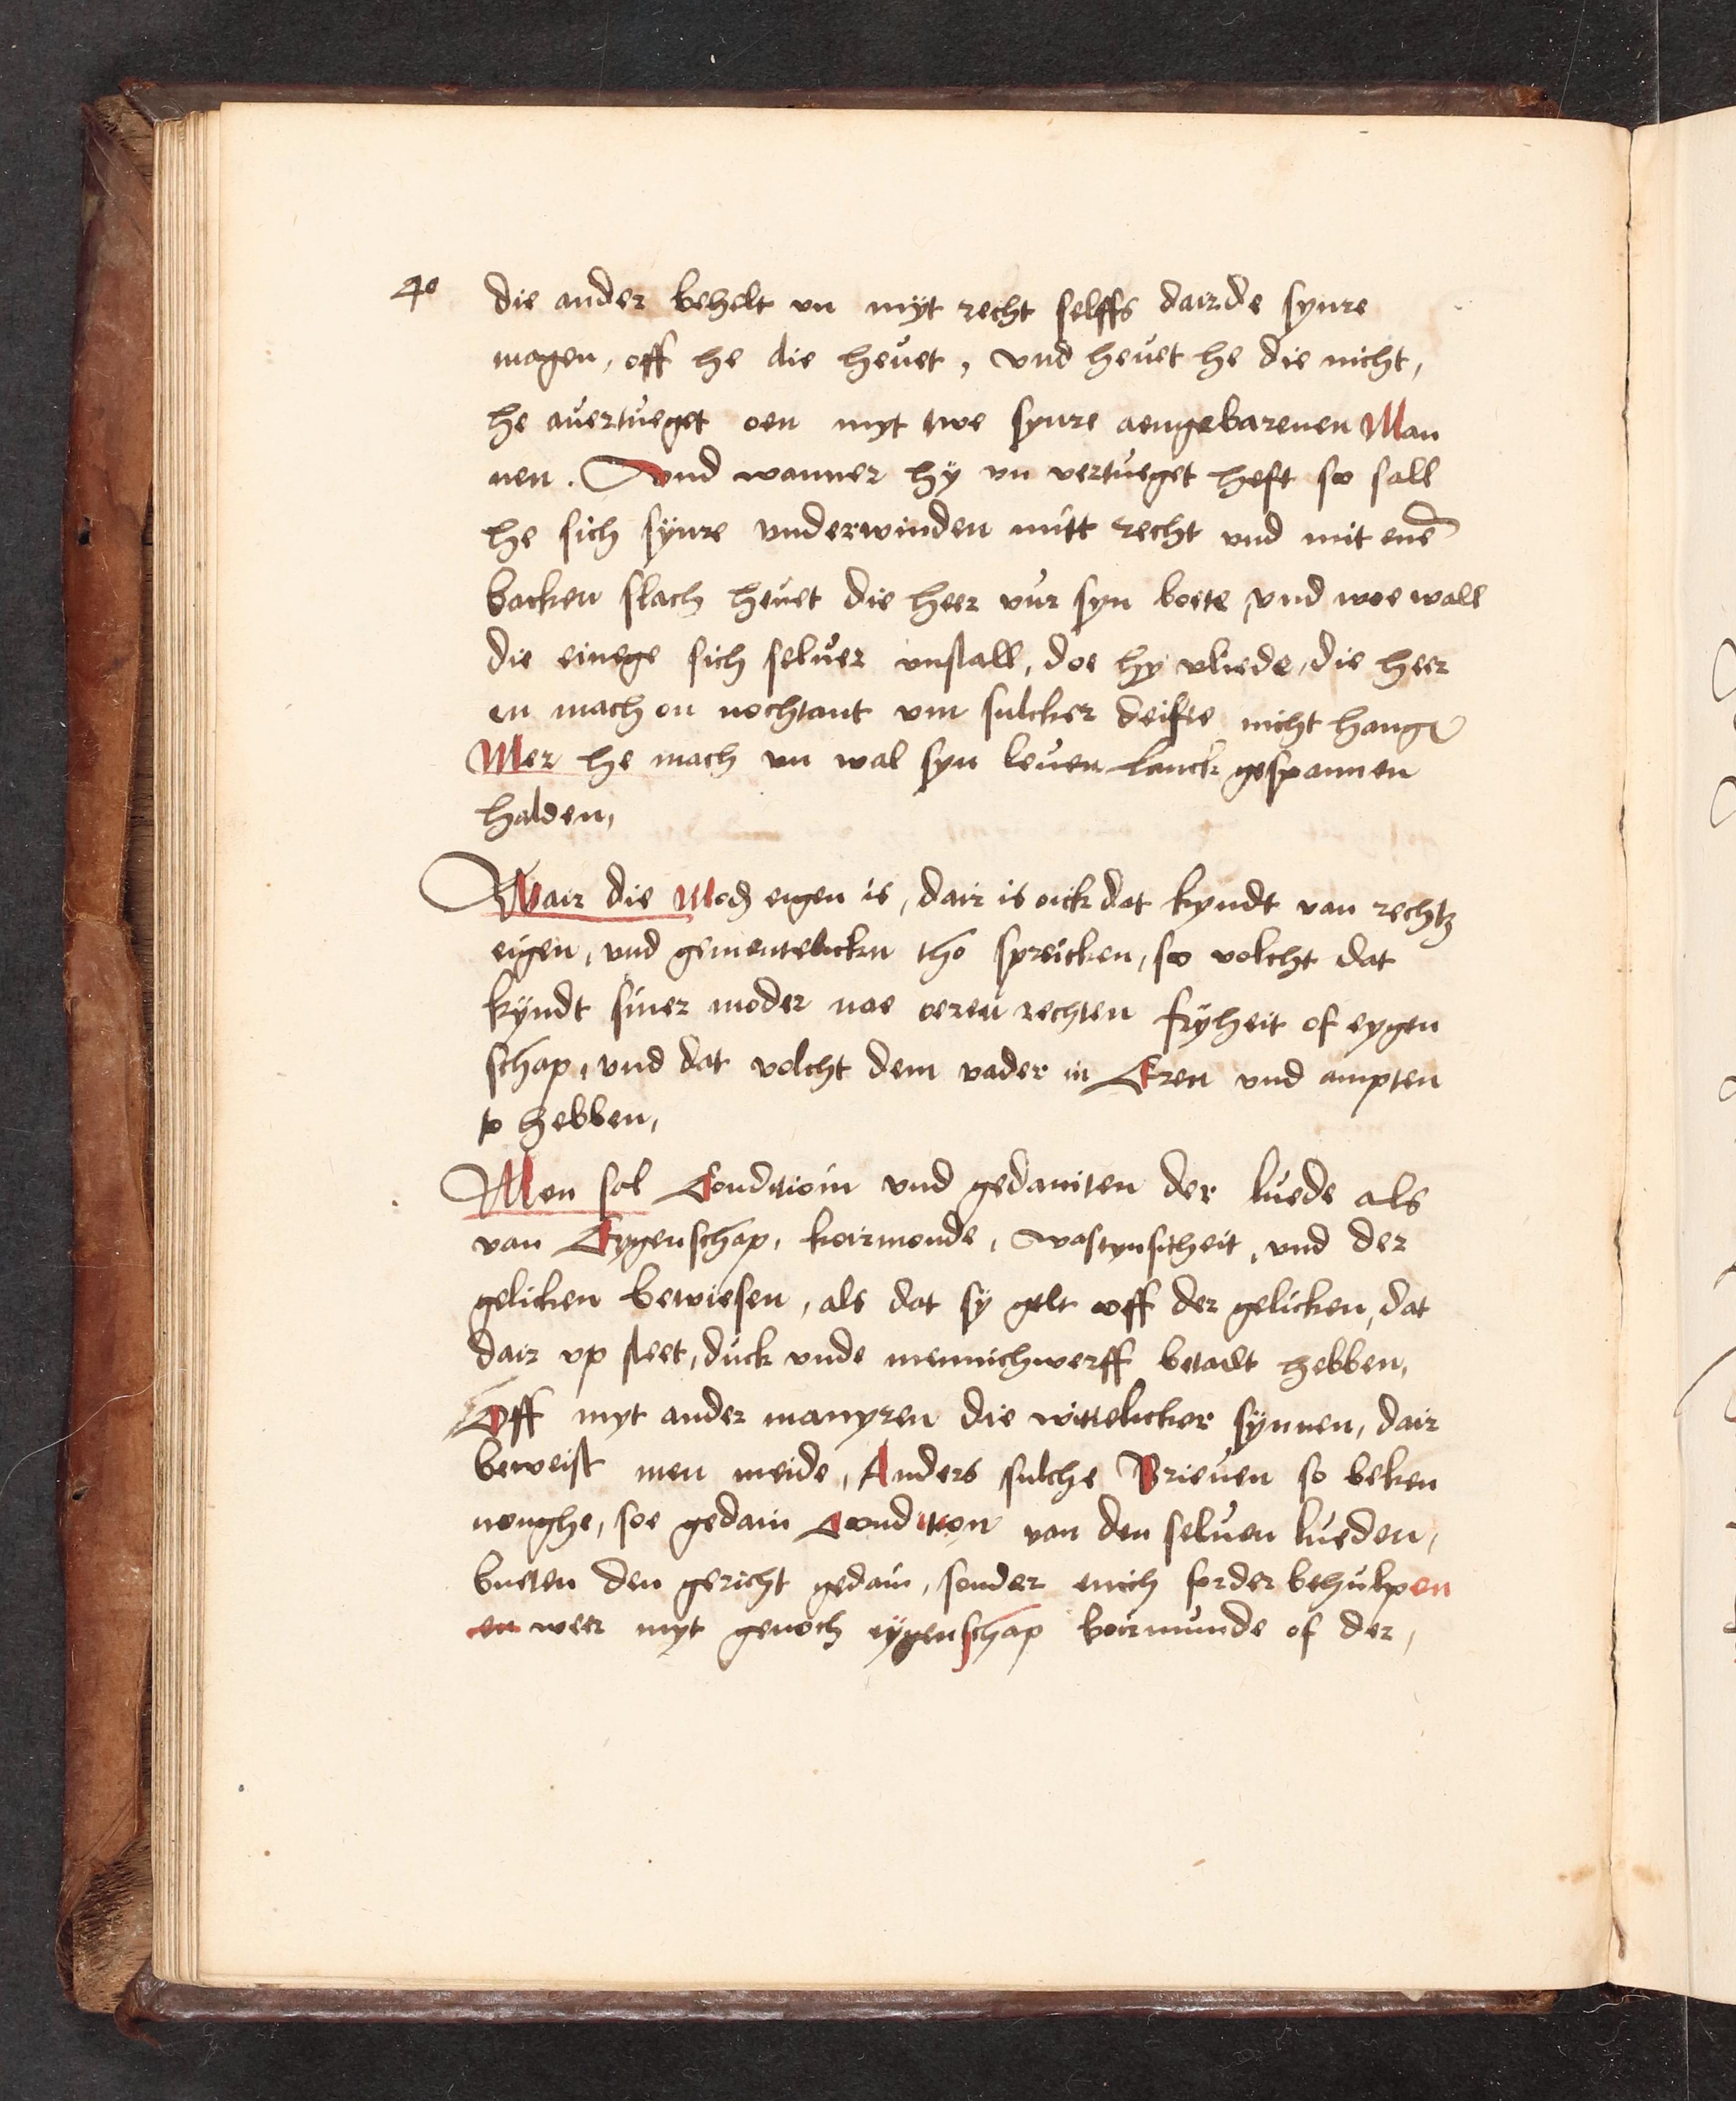 40 die ander behelt vn myt recht selffs dairde synre
magen, off he die heuet, vnd heuet he die nicht,
he auertueget oen myt twe synre aengebarenen Man
nen. Vnd wanner hy vn vertueget heft so sall
he sich synre vnderwinden mitt recht vnd mit enē
backen slach heuet die heer vur syn boete, vnd woe wall
die einege sich seluer vnstall, doe hy vliede, die heer
en mach on nochtant vm sulcker deifte nicht hangē
Mer he mach vn wal syn leuen lanck gespannen
halden,
Wair die Mod eigen is, dair is oick dat kyndt van rechtz
eigen, vnd gementelickn tho spreicken, so volcht dat
kyndt siner moder nae oeren rechten fryheit of eygen
schap, vnd dat volcht dem vader in Eren vnd ampten
to hebben,
Men sal Condition vnd gedaniten der luede als
van Eygenschap, koirmonde, wastynsicheit, vnd der
gelicken bewiesen, als dat sy gelt off der gelicken, dat
dair vp steet, duck vnde mennichwerff betailt hebben,
Off myt ander manyren die wittelicker synnen, dair
beweist men meide, Anders sulche Brieuen so beken
nonghe, soe gedain Condition van den seluen lueden,
bueten den gericht gedain, sonder enich forder behulpen
en weer myt genoch eygenschap koirmunde of der,